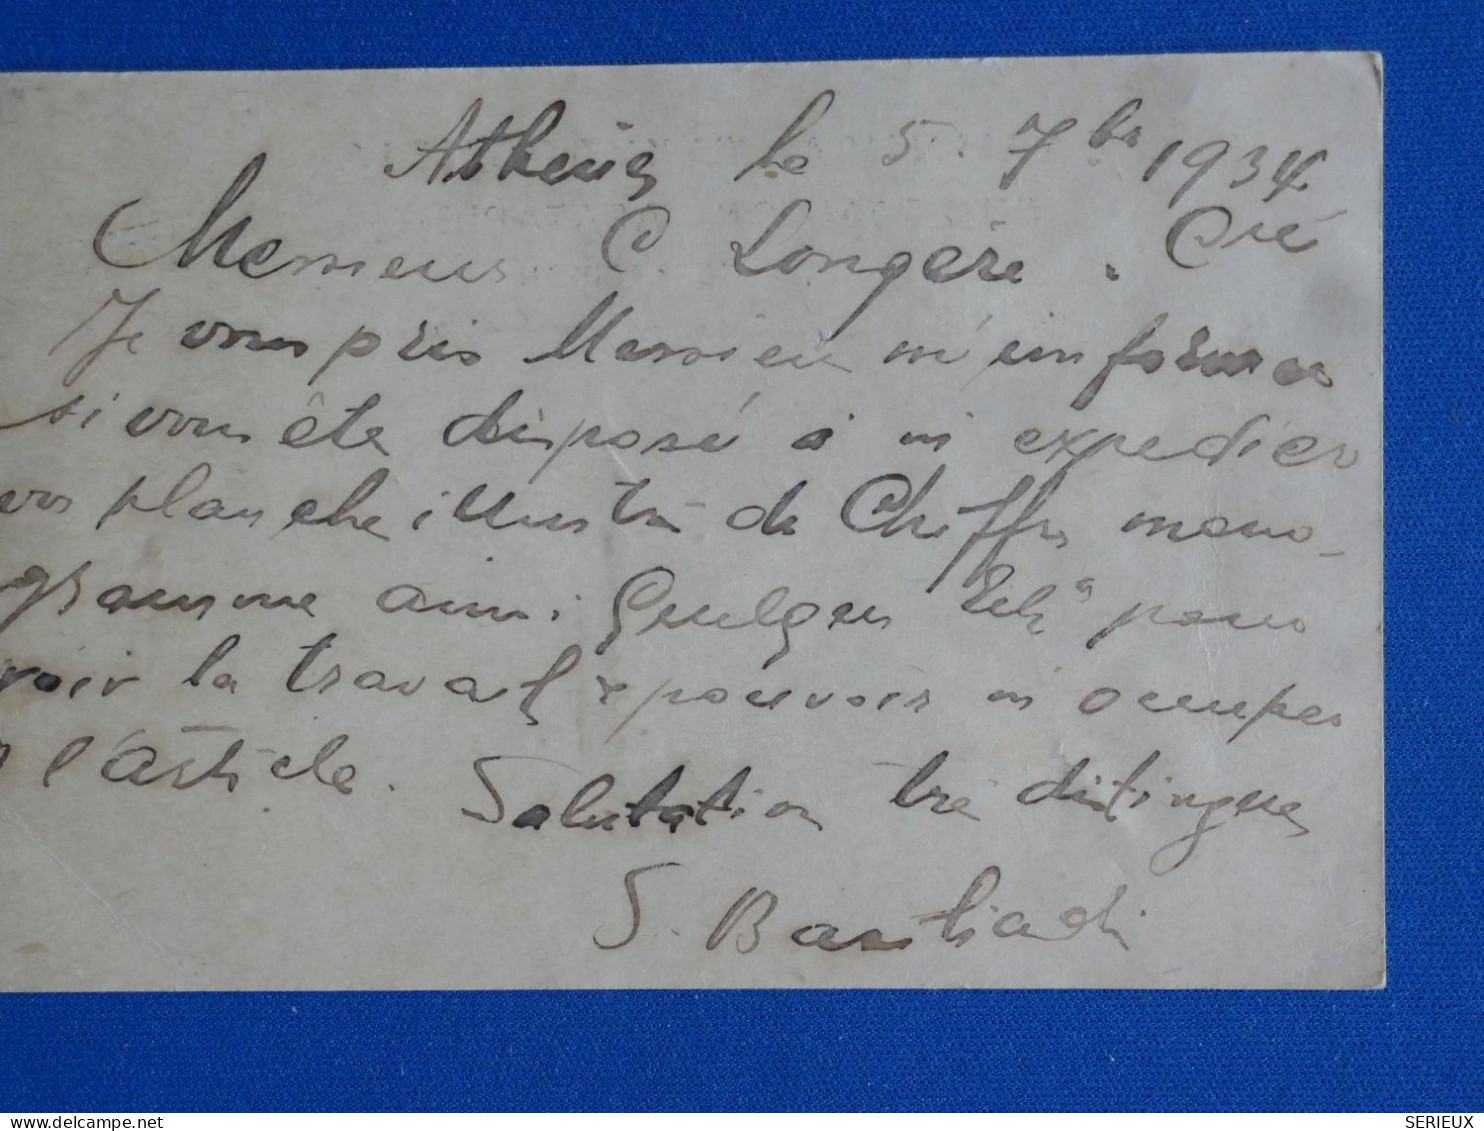 Athens le 5. 7bre 1934
Messieurs C Longère. Cie
Je vous pris Messieu m'informer
si vous ête disposé à m expedier
vos planche illustré de Chiffres mono-
gramme ainsi Quelques pour
voir la travail pouvoir m ocuper
l'article.
Salutation tré distingue
S. Bastiadi
SERIEUX
delcampe.net